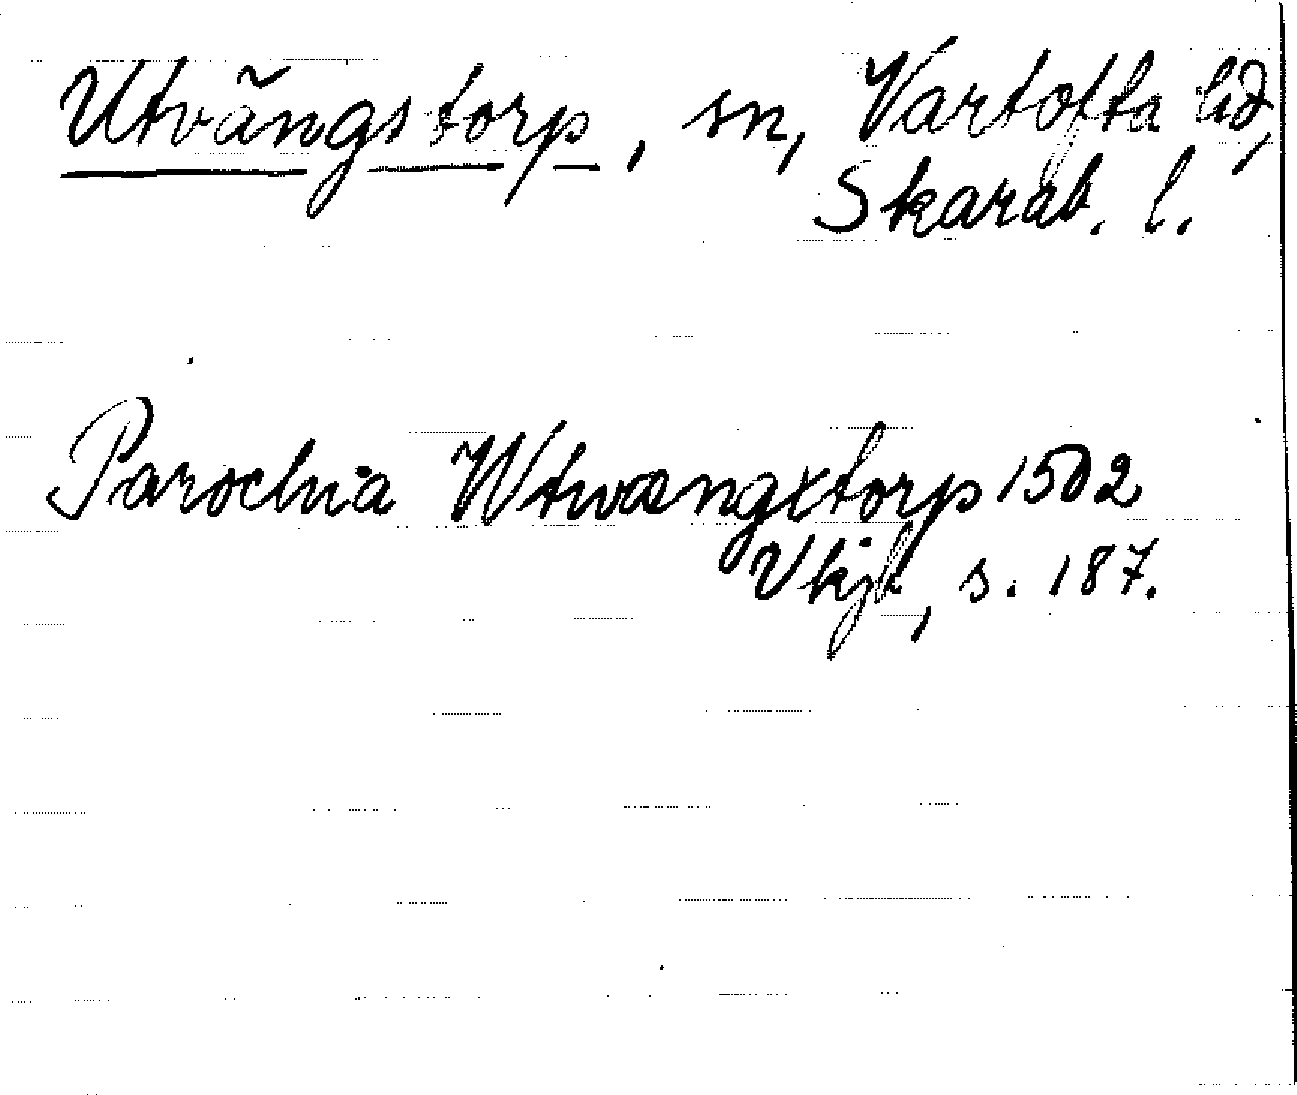 Utvängstorp, sn, Vartofta hd,
Skarab. l.
Parochia Wtwængxtorp 1502
Vkjb, s. 187.